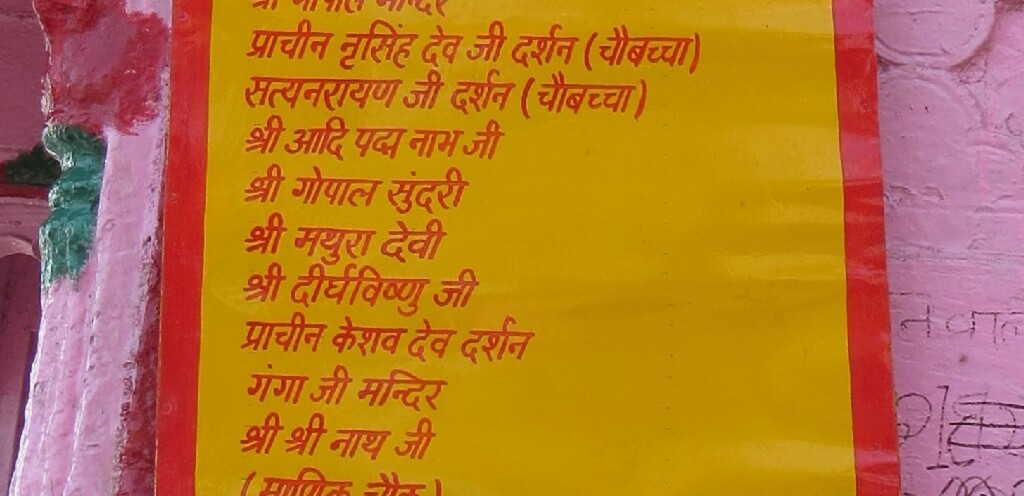 श्री गोपाल मन्दिर
प्राचीन नृसिंह देव जी दर्शन (चौबच्चा)
सत्यनरायण जी दर्शन (चौबच्चा)
श्री आदि पद्म नाभ जी
श्री गोपाल सुंदरी
श्री मथुरा देवी
श्री दीर्घविष्णु जी
प्राचीन केशव देव दर्शन
गंगा जी मन्दिर
श्री श्री नाथ जी
(माणिक चौक)